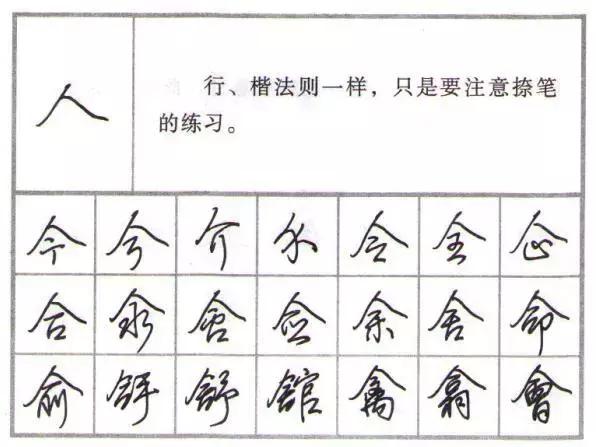 人
行、楷法则一样，只是要注意捺笔
的练习。
今 兮 介 令 全 企
合 含 佥 余 舍 命
俞 舒 館 禽 翕 會